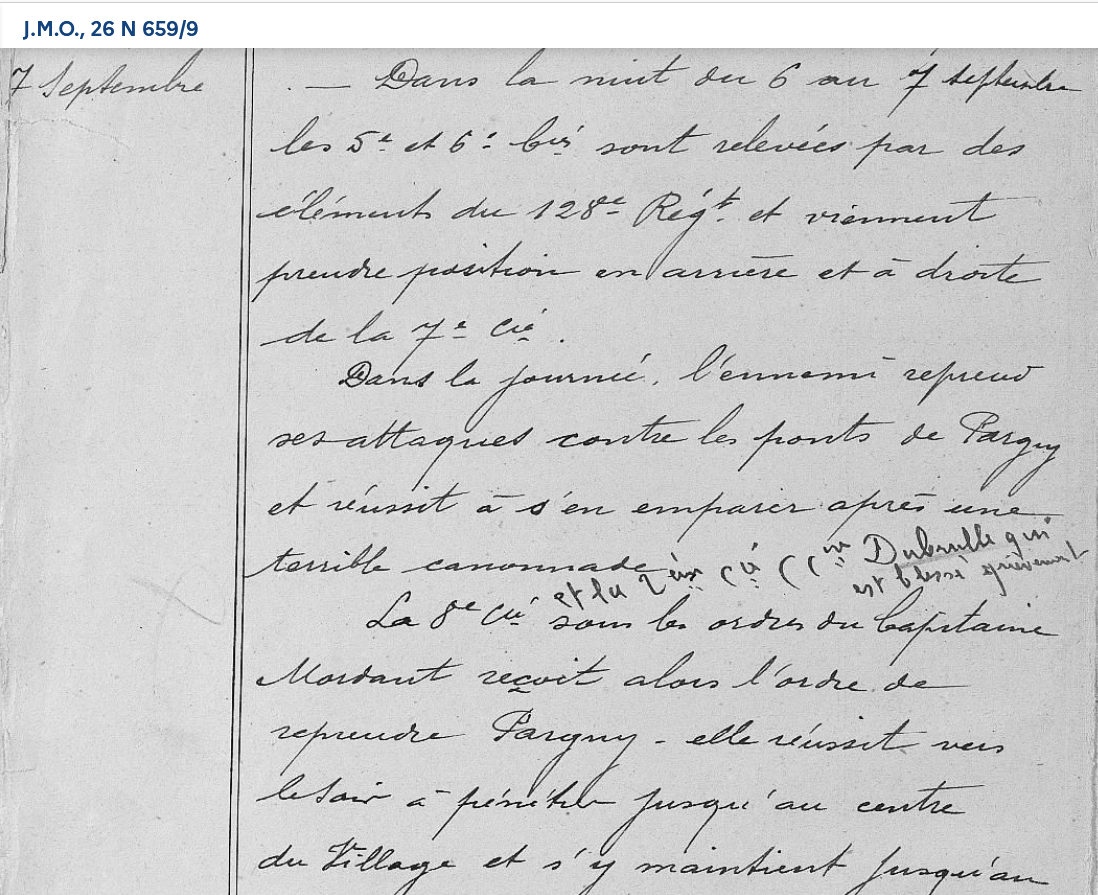 J.M.O., 26 N 659/9
7 Septembre
. — Dans la nuit du 6 au 7 septembre
les 5e et 6e Cies sont relevées par des
éléments du 128e Régt. et viennent
prendre position en arrière et à droite
de la 7e Cie.
Dans la journée, l'ennemi reprend
ses attaques contre les ponts de Pargny
et réussit à s'en emparer après une
terrible canonnade
et la Cie (Cne Dubrulle qui
est blessé grièvement
La 8e Cie sous les ordres du Capitaine
Mordant reçoit alors l'ordre de
reprendre Pargny - elle réussit vers
le soir à pénétrer jusqu'au centre
du Village et s'y maintient jusqu'au